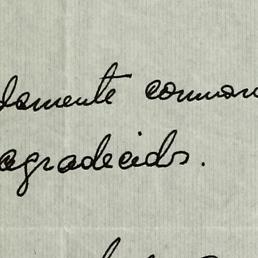 damente conmov
agradecido.